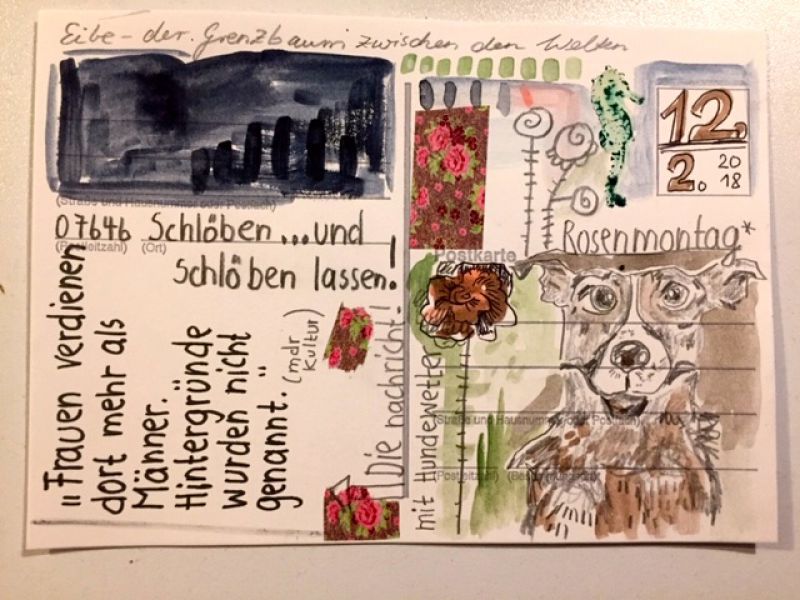 Eibe – der Grenzbaum zwischen den Welten
(Straße und Hausnummer oder Postfach)
07646 Schlöben ... und
(Postleitzahl) (Ort)
Schlöben lassen!
„Frauen verdienen
dort mehr als
Männer.
Hintergründe
wurden nicht
genannt."
(mdr
Kultur)
Die Nachricht!
12
2. 20
18
Rosenmontag*
Postkarte
mit Hundewetter
(Straße und Hausnummer oder Postfach)
(Postleitzahl)